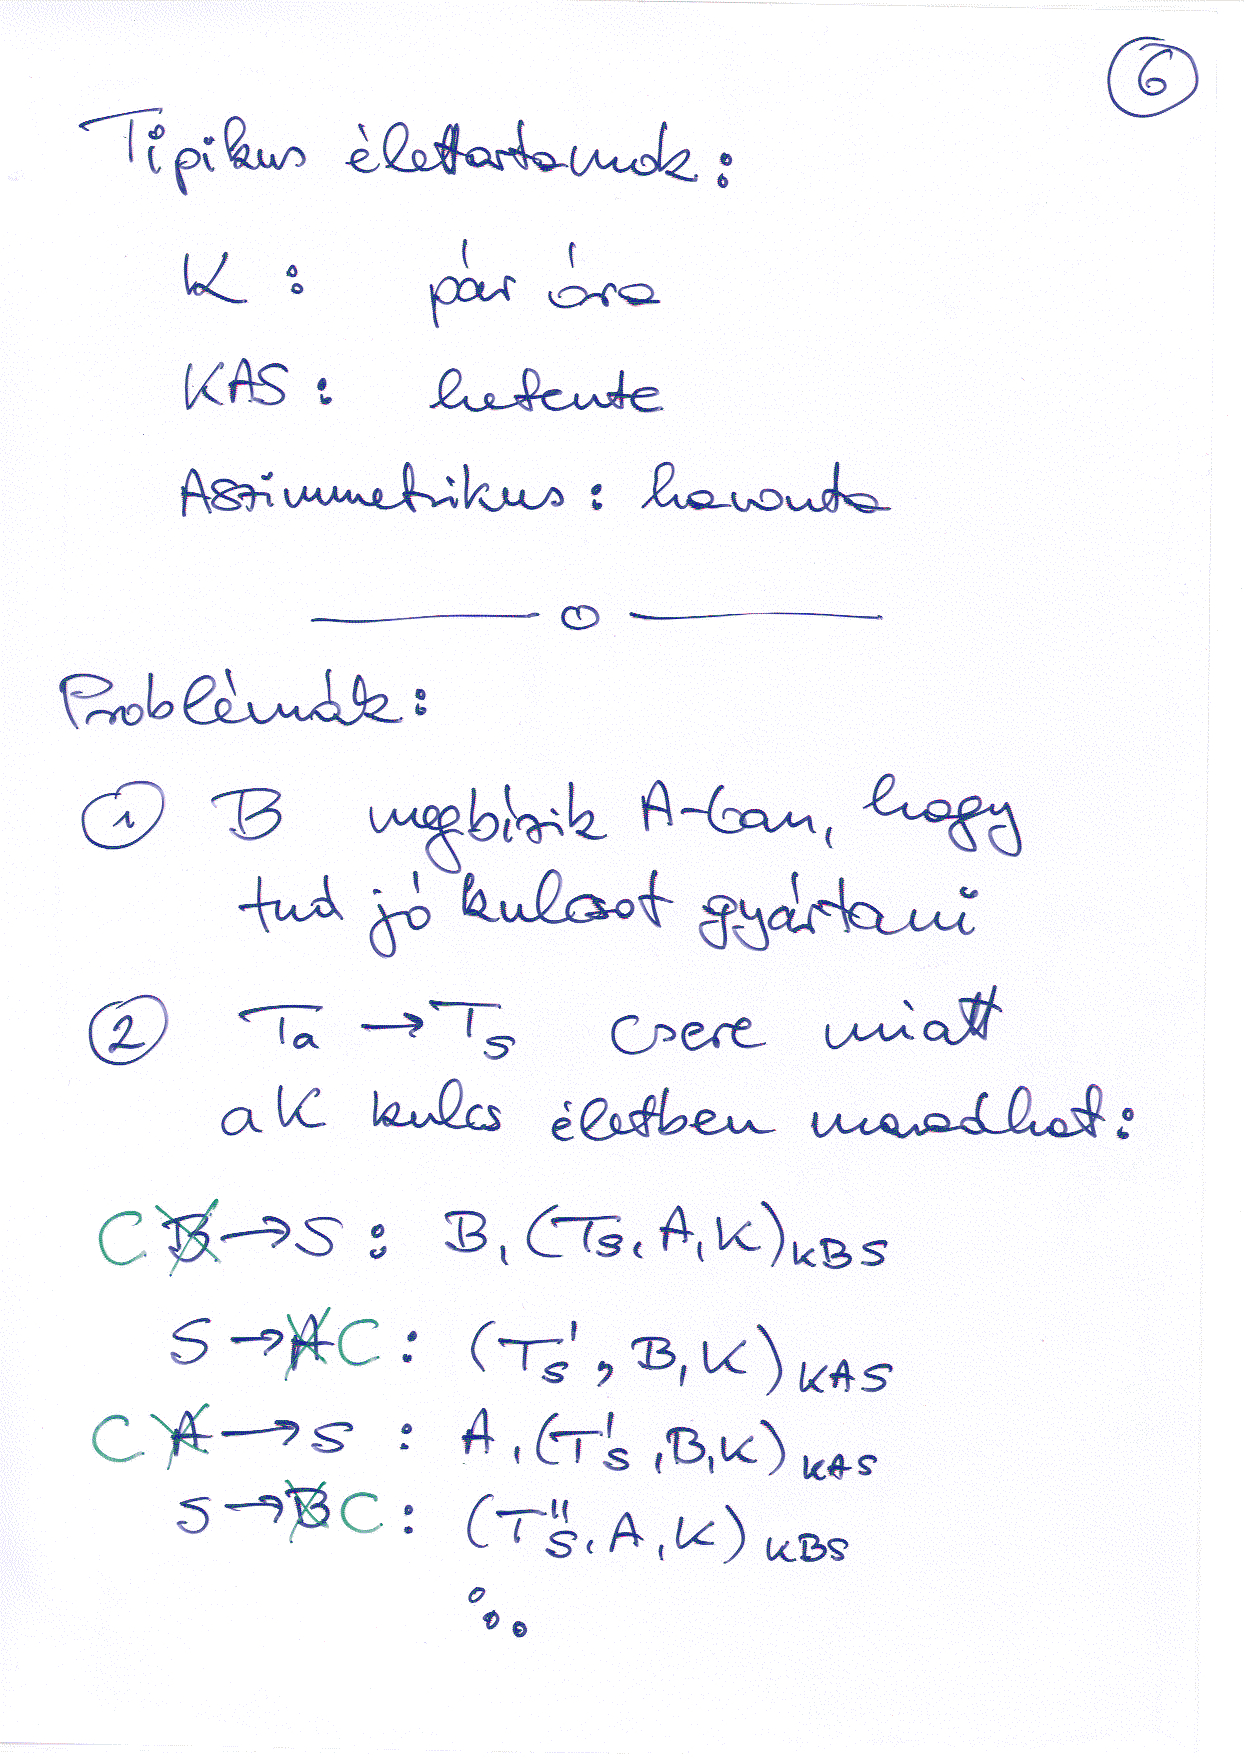 6
Tipikus élettartamok:
K : pár óra
KAS : hetente
Aszimmetrikus : havonta
Problémák:
1 B megbízik A-ban, hogy
tud jó kulcsot gyártani
2 Ta → Ts csere miatt
a K kulcs életben maradhat:
C B → S : B, (Ts, A, K)KBS
S → A C : (Ts', B, K)KAS
C A → S : A, (T's, B, K)KAS
S → B C : (T"s, A, K)KBS